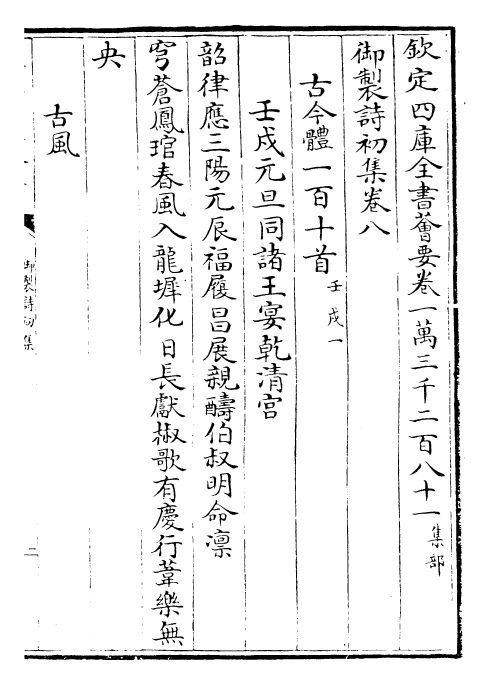 欽定四庫全書薈要卷一萬三千二百八十一集部
御製詩初集卷八
古今體一百十首壬戌一
壬戌元旦同諸王宴乾清宮
韶律應三陽元辰福履昌展親疇伯叔明命凛
穹蒼鳳琯春風入龍墀化日長獻椒歌有慶行葦樂無
央
古風
御製詩初集
二